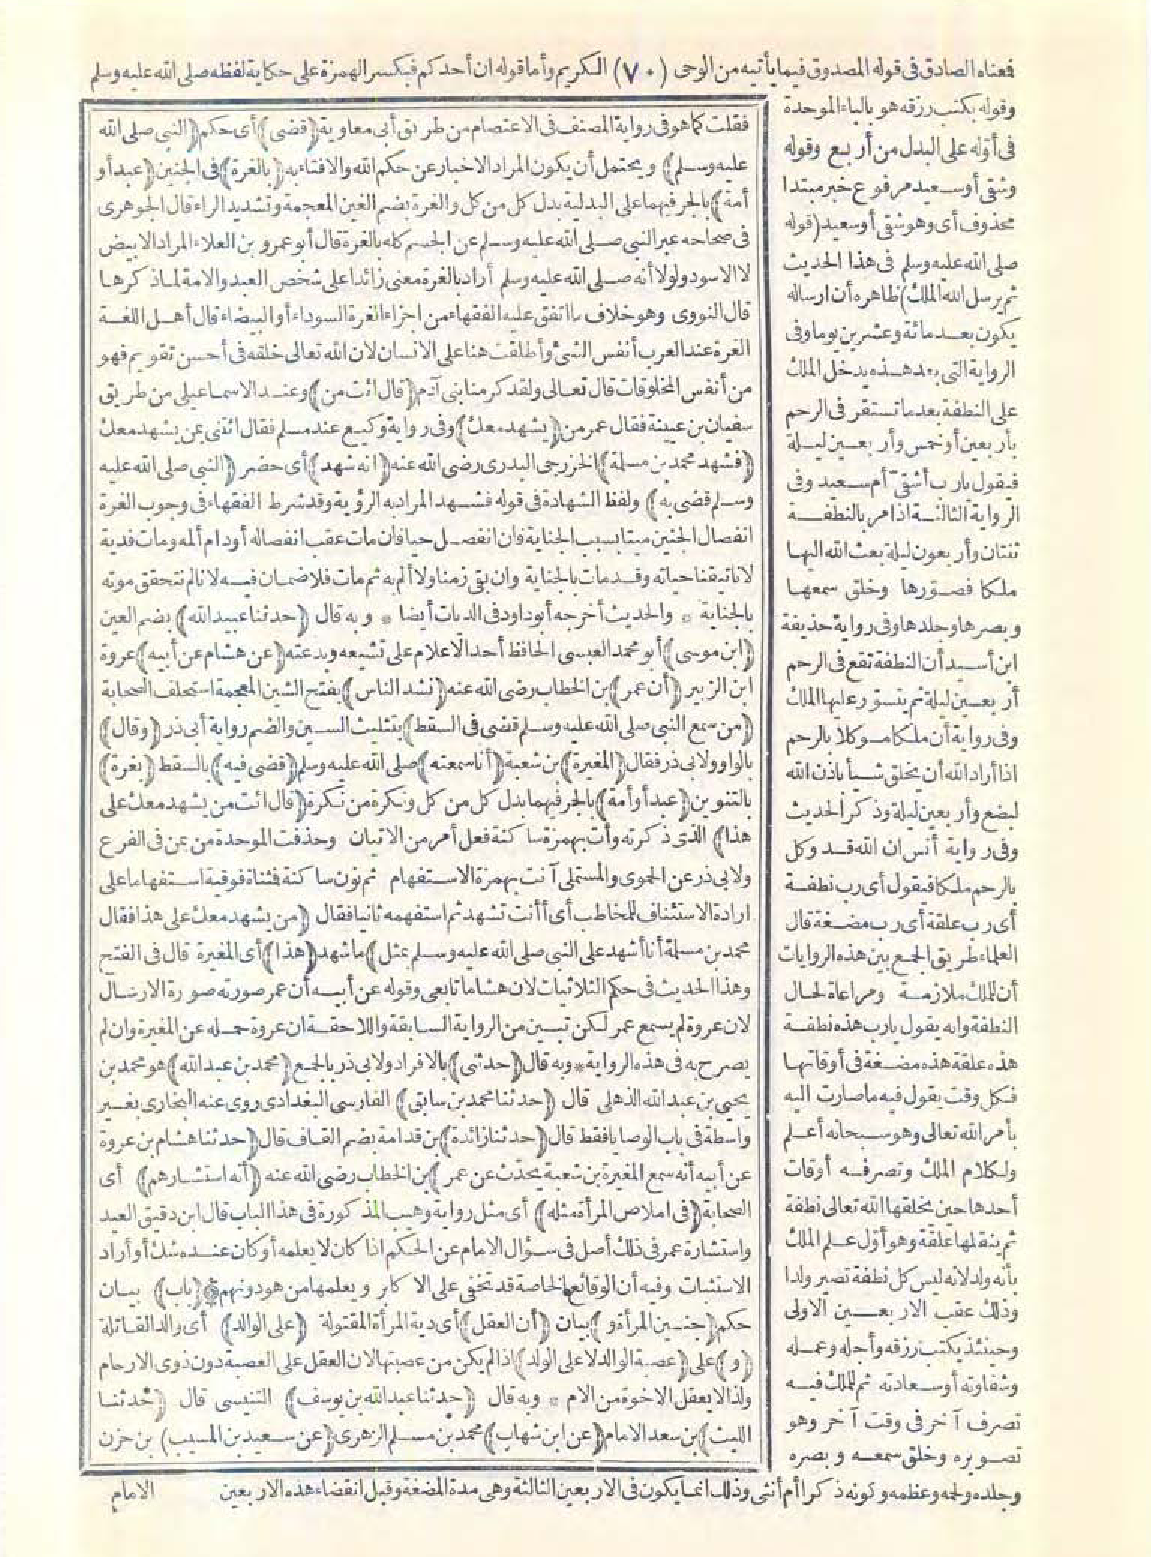 فمعناه الصادق في قوله المصدوق فيما يأتيه من الوحى (٧٠) الكريم وأما قوله ان أحدكم فبكسر الهمزة على حكاية لفظه صلى الله عليه وسلم
وقوله بكتب رزقه هو بالباء الموحدة
فى أوّله على البدل من أربع وقوله
وشقى أوسعيد مرفوع خبر مبتدا
محذوف أى وهوشقى أوسعيد (قوله
صلى الله عليه وسلم فى هذا الحديث
ثم يرسل الله الملك) ظاهره أن ارساله
يكون بعد مائة وعشرين يوما وفى
الرواية التى بعد هذه يدخل الملك
على النطفة بعدما تستقر فى الرحم
بأربعين أو خمس وأربعين ليلة
فيقول يارب أشقىّ أم سعيد وفى
الرواية الثالثة اذا مر بالنطفة
ثنتان وأربعون ليلة بعث الله اليها
ملكا فصوّرها وخلق سمعها
وبصرها وجلدها وفى رواية حذيفة
ابن أسيد أن النطفة تقع فى الرحم
أربعين ليلة ثم يتسور عليها الملك
وفى رواية أن ملكا موكلا بالرحم
اذا أراد الله أن يخلق شيأ باذن الله
لبضع وأربعين ليلة وذكر الحديث
وفى رواية أنس ان الله قد وكل
بالرحم ملكا فيقول أى رب نطفة
أى رب علقة أى رب مضغة قال
العلماء طريق الجمع بين هذه الروايات
أن للملك ملازمة ومراعاة لحال
النطفة وانه يقول يارب هذه نطفة
هذه علقة هذه مضغة فى أوقاتها
فكل وقت يقول فيه ما صارت اليه
بأمر الله تعالى وهو سبحانه أعلم
ولكلام الملك وتصرفه أوقات
أحدها حين يخلقها الله تعالى نطفة
ثم ينقلها علقة وهو أوّل علم الملك
بأنه ولد لانه ليس كل نطفة تصير ولدا
وذلك عقب الاربعين الاولى
وحينئذ يكتب رزقه وأجله وعمله
وشقاوته أوسعادته ثم للملك فيه
تصرف آخر فى وقت آخر وهو
تصويره وخلق سمعه وبصره
وجلده ولحمه وعظمه وكونه ذكرا أم أنثى وذلك انما يكون فى الاربعين الثالثة وهى مدة المضغة وقبل انقضاء هذه الاربعين
فقلت كما هو فى رواية المصنف فى الاعتصام من طريق أبى معاوية (قضى) أى حكم (النبى صلى الله
عليه وسلم) ويحتمل أن يكون المراد الاخبار عن حكم الله والافتاء به (بالغرة) فى الجنين (عبد أو
أمة) بالجر فيهما على البدلية بدل كل من كل والغرة بضم الغين المعجمة وتشديد الراء قال الجوهرى
فى صحاحه عبر النبى صلى الله عليه وسلم عن الجسم كله بالغرة قال أبو عمرو بن العلاء المراد الابيض
لا الاسود ولولا أنه صلى الله عليه وسلم أراد بالغرة معنى زائدا على شخص العبد والامة لما ذكرها
قال النووى وهو خلاف ما اتفق عليه الفقهاء من اجزاء الغرة السوداء أو البيضاء قال أهل اللغة
الغرة عند العرب أنفس الشئ وأطلقت هنا على الانسان لان الله تعالى خلقه فى أحسن تقويم فهو
من أنفس المخلوقات قال تعالى ولقد كرمنا بنى آدم (قال ائت من) وعند الاسماعيلى من طريق
سفيان بن عيينة فقال عمر من (يشهد معك) وفى رواية وكيع عند مسلم فقال ائتنى بمن يشهد معك
(فشهد محمد بن مسلمة) الخزرجى البدرى رضى الله عنه (انه شهد) أى حضر (النبى صلى الله عليه
وسلم قضى به) ولفظ الشهادة فى قوله فشهد المراد به الرؤية وقد شرط الفقهاء فى وجوب الغرة
انفصال الجنين ميتا بسبب الجناية فان انفصل حيا فان مات عقب انفصاله أو دام ألمه ومات فدية
لانا تيقنا حياته وقد مات بالجناية وان بقى زمنا ولا ألم به ثم مات فلا ضمان فيه لانا لم نتحقق موته
بالجناية * والحديث أخرجه أبو داود فى الديات أيضا * وبه قال (حدثنا عبيد الله) بضم العين
(ابن موسى) أبو محمد العبسى الحافظ أحد الاعلام على تشيعه وبدعته (عن هشام عن أبيه) عروة
ابن الزبير (أن عمر) بن الخطاب رضى الله عنه (نشد الناس) بفتح الشين المعجمة استحلف الصحابة
(من سمع النبى صلى الله عليه وسلم قضى فى السقط) بتثليث السين والضم رواية أبى ذر (وقال)
بالواو ولابى ذر فقال (المغيرة) بن شعبة (أنا سمعته) صلى الله عليه وسلم (قضى فيه) بالسقط (بغرة)
بالتنوين (عبد أو أمة) بالجر فيهما بدل كل من كل ونكرة من نكرة (قال ائت من يشهد معك على
هذا) الذى ذكرته وأت بهمزة ساكنة فعل أمر من الاتيان وحذفت الموحدة من بمن فى الفرع
ولابى ذر عن الحموى والمستملى آنت بهمزة الاستفهام ثم نون ساكنة فمثناة فوقية استفهاما على
ارادة الاستئناف للمخاطب أى أأنت تشهد ثم استفهمه ثانيا فقال (من يشهد معك على هذا فقال
محمد بن مسلمة أنا أشهد على النبى صلى الله عليه وسلم بمثل) ما شهد (هذا) أى المغيرة قال فى الفتح
وهذا الحديث فى حكم الثلاثيات لان هشاما تابعى وقوله عن أبيه أن عمر صورته صورة الارسال
لان عروة لم يسمع عمر لكن تبين من الرواية السابقة واللاحقة ان عروة حمله عن المغيرة وان لم
يصرح به فى هذه الرواية * وبه قال (حدثنى) بالافراد ولابى ذر بالجمع (محمد بن عبد الله) هو محمد بن
يحيى بن عبد الله الذهلى قال (حدثنا محمد بن سابق) الفارسى البغدادى روى عنه البخارى بغير
واسطة فى باب الوصايا فقط قال (حدثنا زائدة) بن قدامة بضم القاف قال (حدثنا هشام بن عروة
عن أبيه أنه سمع المغيرة بن شعبة يحدّث عن عمر) بن الخطاب رضى الله عنه (أنه استشارهم) أى
الصحابة (فى املاص المرأة مثله) أى مثل رواية وهيب المذكورة فى هذا الباب قال ابن دقيق العيد
واستشارة عمر فى ذلك أصل فى سؤال الامام عن الحكم اذا كان لا يعلمه أو كان عنده شك أو أراد
الاستثبات وفيه أن الوقائع الخاصة قد تخفى على الاكابر ويعلمها من هو دونهم (باب) بيان
حكم (جنين المرأة و) بيان (أن العقل) أى دية المرأة المقتولة (على الوالد) أى والد القاتلة
(و) على (عصبة الوالد لا على الولد) اذا لم يكن من عصبتها لان العقل على العصبة دون ذوى الارحام
ولذا لا يعقل الاخوة من الام * وبه قال (حدثنا عبد الله بن يوسف) التنيسى قال (حدثنا
الليث) بن سعد الامام (عن ابن شهاب) محمد بن مسلم الزهرى (عن سعيد بن المسيب) بن حزن
الامام